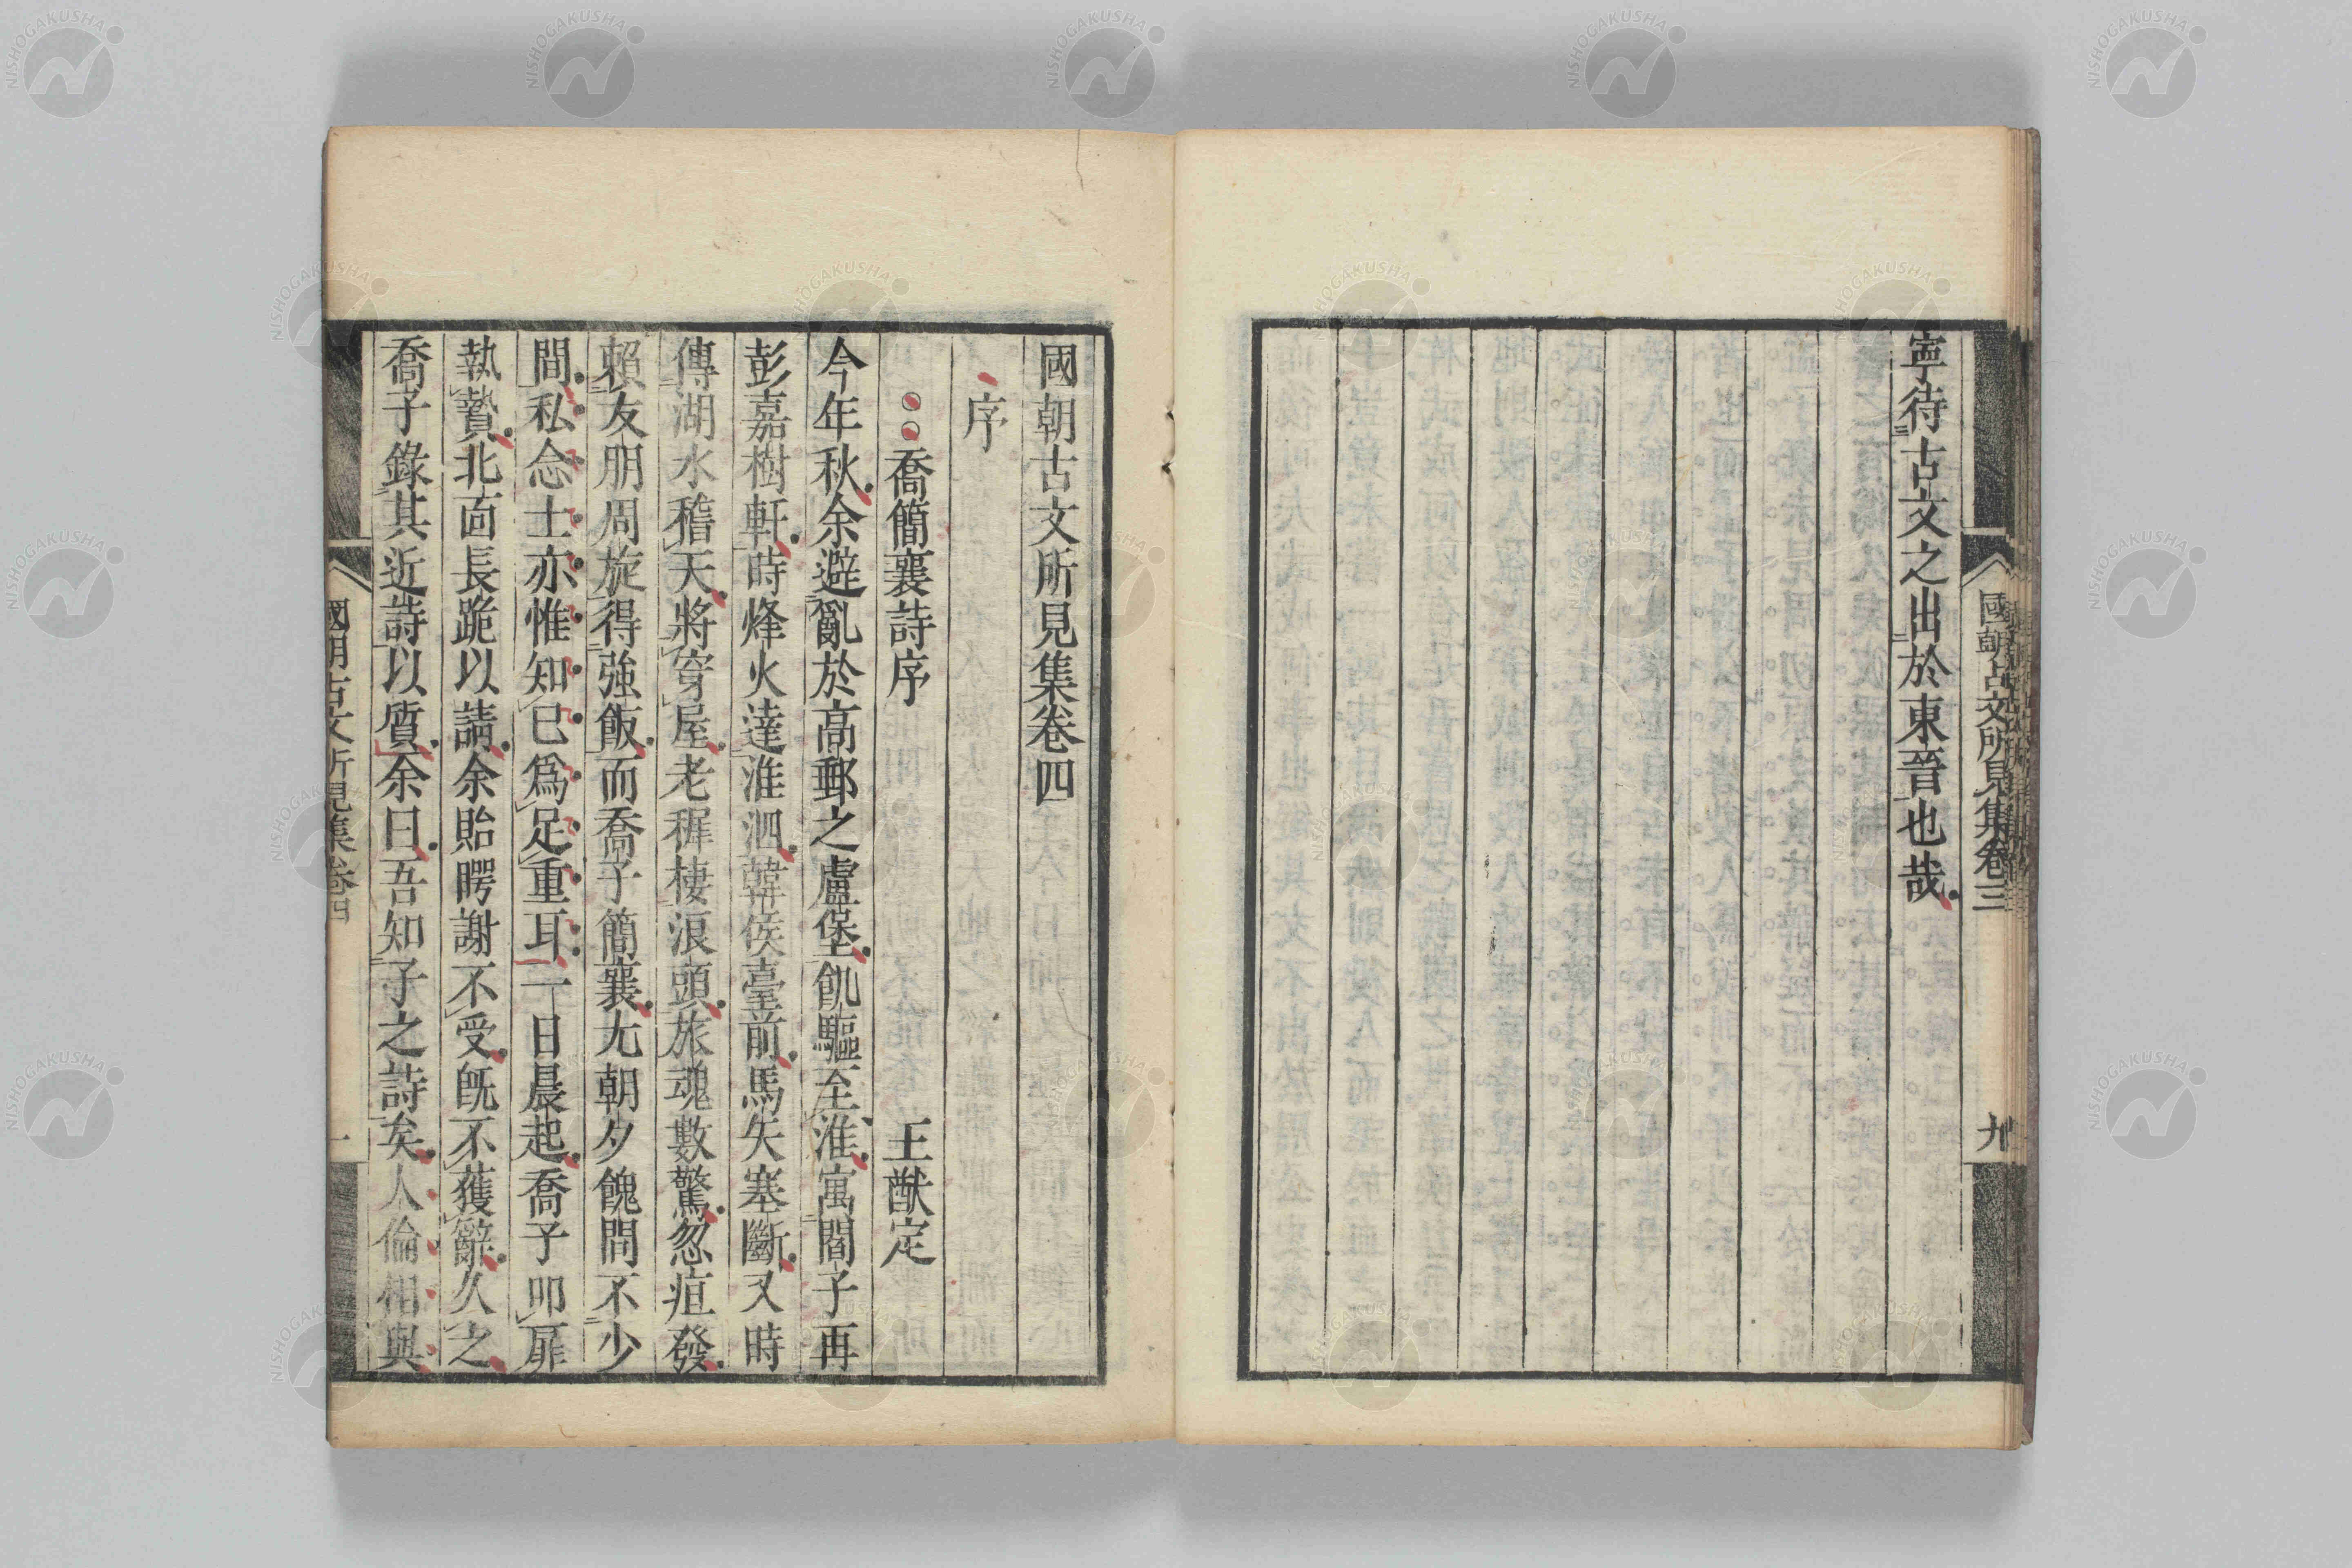 寧待古文之出於東晉也哉
國朝古文所見集卷三
九
國朝古文所見集卷四
序
喬簡襄詩序
王猷定
今年秋余避亂於高郵之盧堡飢驅至淮寓閻子再
彭嘉樹軒時烽火達淮泗韓侯臺前馬矢塞斷又時
傳湖水稽天將穿屋老穉棲浪頭旅魂數驚忽疸發
賴友朋周旋得強飯而喬子簡襄尤朝夕餽問不少
間私念士亦惟知己爲足重耳一日晨起喬子叩扉
執贄北面長跪以請余眙愕謝不受旣不獲辭久之
喬子錄其近詩以質余曰吾知子之詩矣人倫相與
國朝古文所見集卷四
一
NISHOGAKUSHA